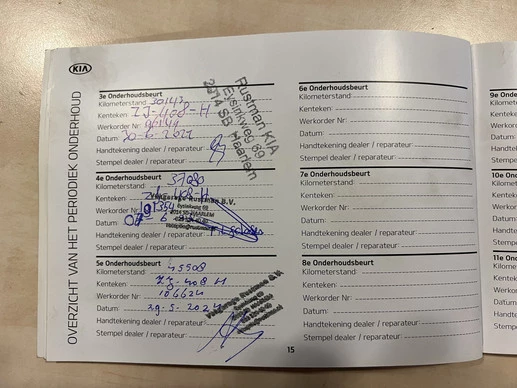 KIA
OVERZICHT VAN HET PERIODIEK ONDERHOUD
3e Onderhoudsbeurt
Kilometerstand 30147
Kenteken: ZJ-408-H
Werkorder Nr
Datum 30-6-2022
Handtekening dealer / reparateur:
Stempel dealer / reparateur:
Rustman KIA
Eysinkweg 89
2014 SB Haarlem
4e Onderhoudsbeurt
Kilometerstand:
Kenteken 408-H
Werkorder Nr
Datum: 6
Handtekening dealer / reparateur:
Stempel dealer / reparateur:
Rustman B.V.
2014 SB HAARLEM
5e Onderhoudsbeurt
Kilometerstand: 45508
Kenteken: ZJ-408 H
Werkorder Nr: 106624
Datum: 29-5-2024
Handtekening dealer / reparateur:
Stempel dealer / reparateur:
Rustman B.V.
6e Onderhoudsbeurt
Kilometerstand:
Kenteken:
Werkorder Nr:
Datum:
Handtekening dealer / reparateur:
Stempel dealer / reparateur:
7e Onderhoudsbeurt
Kilometerstand:
Kenteken:
Werkorder Nr:
Datum:
Handtekening dealer / reparateur:
Stempel dealer / reparateur:
8e Onderhoudsbeurt
Kilometerstand:
Kenteken:
Werkorder Nr:
Datum:
Handtekening dealer / reparateur:
Stempel dealer / reparateur:
15
9e On
Kilom
Kente
Werk
Datu
Hand
Stem
10e
Kilo
Ken
We
Dat
Ha
Ste
11e
Kil
Ke
W
D
H
S